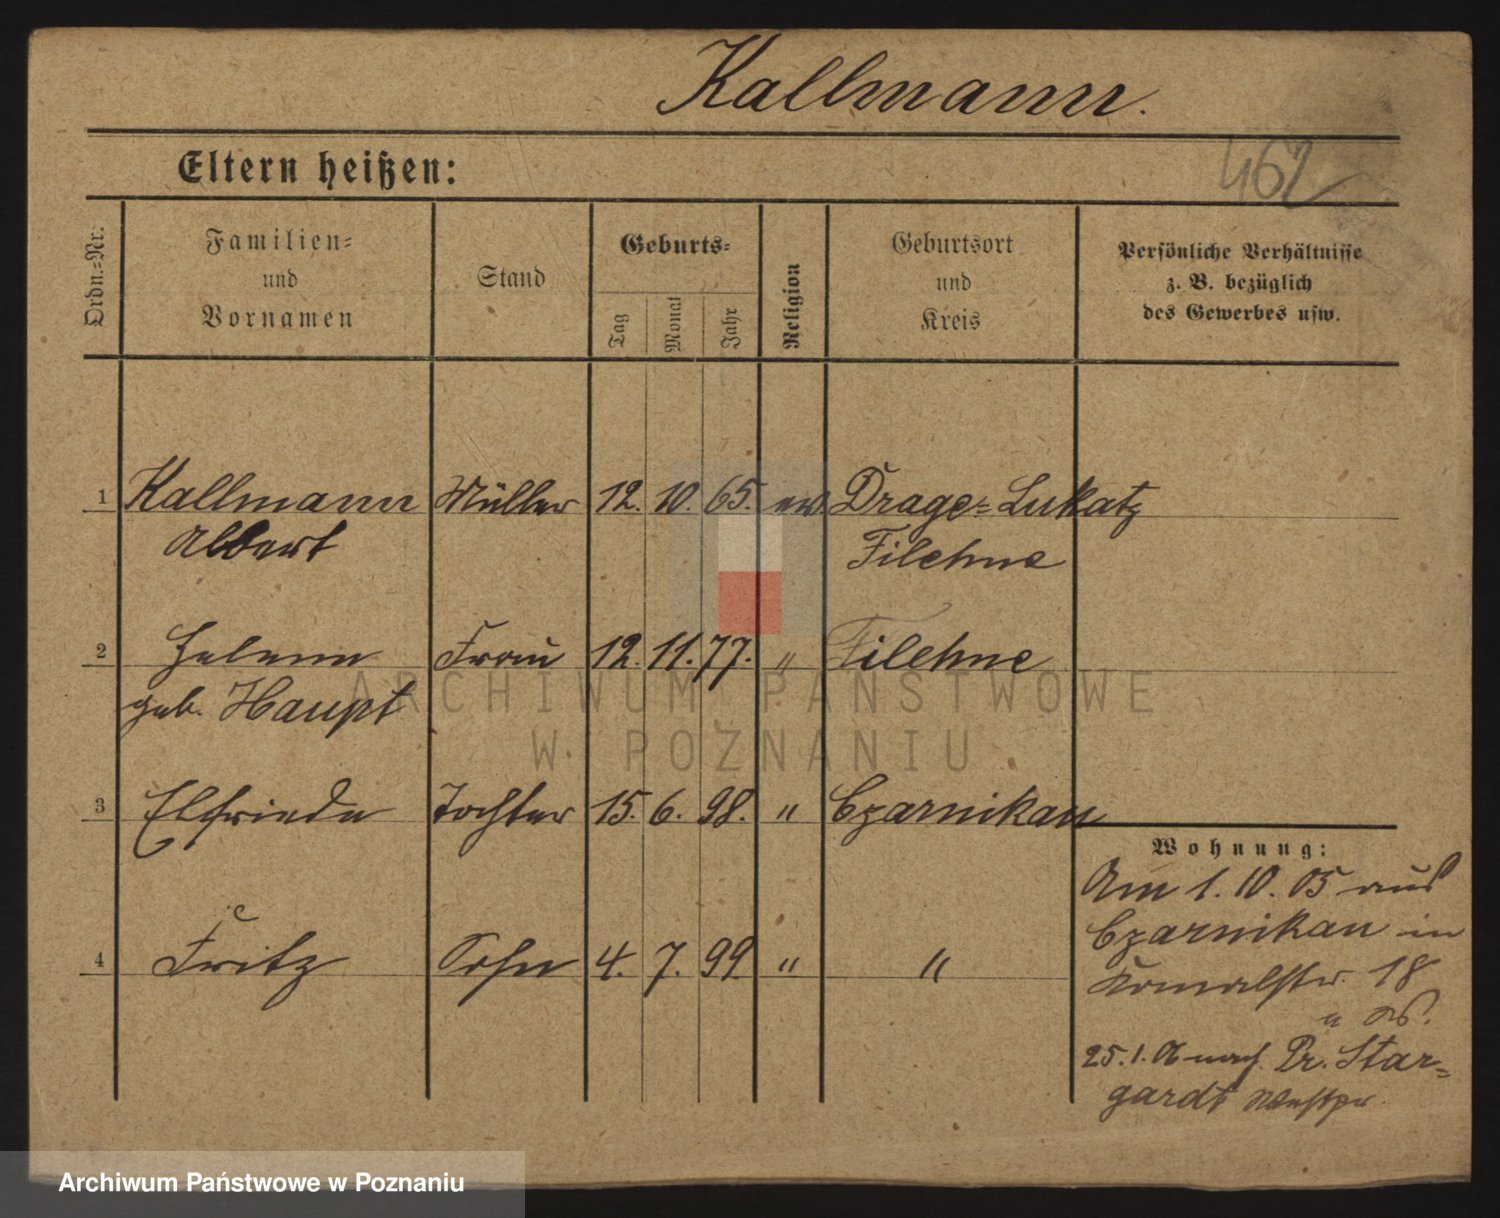 Kallmann.
Eltern heißen:
462
Ordn.-Nr.
Familien-
und
Vornamen
Stand
Geburts-
Tag
Monat
Jahr
Religion
Geburtsort
und
Kreis
Persönliche Verhältnisse
z. B. bezüglich
des Gewerbes usw.
1 Kallmann Müller 12. 10. 65. ev. Drage-Lukatz
Albert Filehne
2 Helene Frau 12. 11. 77. " Filehne
geb. Haupt
ARCHIWUM PAŃSTWOWE
W POZNANIU
3 Elfriede Tochter 15. 6. 98. " Czarnikau
4 Fritz Sohn 4. 7. 99. " "
Wohnung:
Am 1. 10. 05 aus
Czarnikau in
18
25. 1. 06 nach Pr. Star-
gardt Westpr.
Archiwum Państwowe w Poznaniu